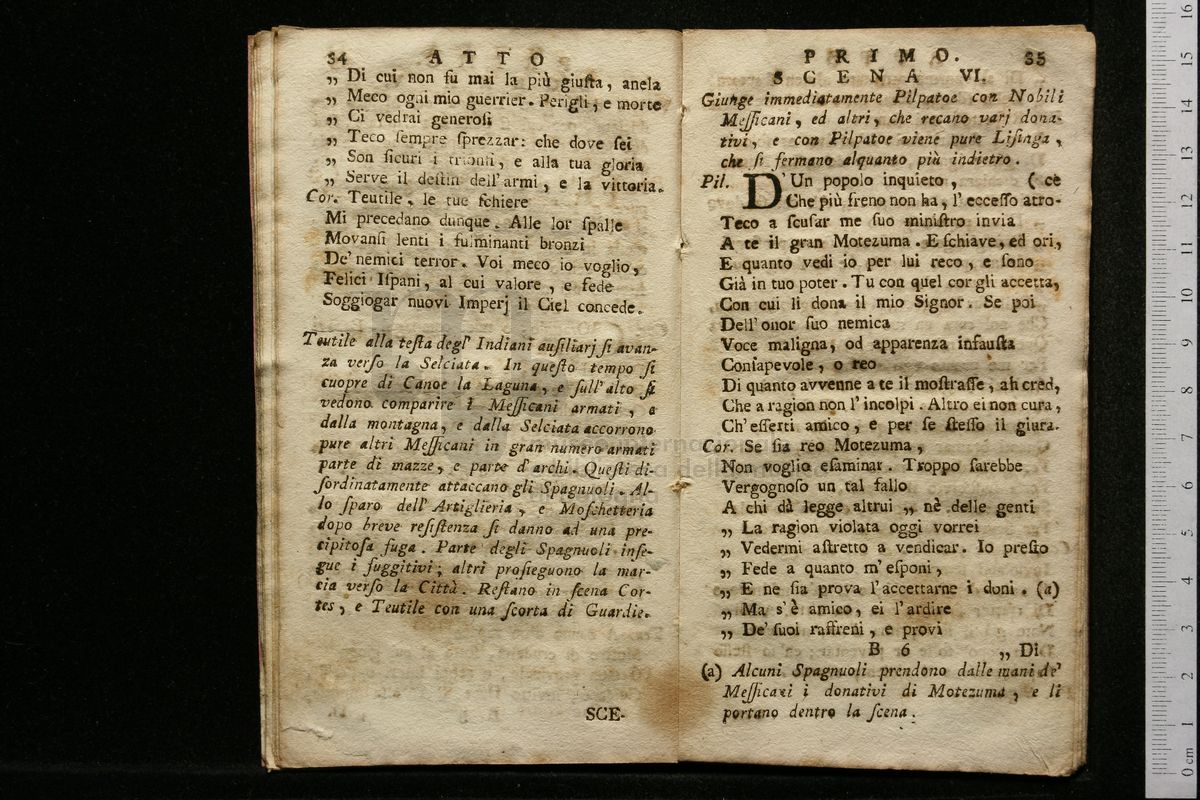 34 ATTO
„ Di cui non fu mai la più giuſta, anela
„ Meco ogni mio guerrier. Perigli, e morte
„ Ci vedrai generoſi
„ Teco ſempre ſprezzar: che dove ſei
„ Son ſicuri i trionfi, e alla tua gloria
„ Serve il deſtin dell'armi, e la vittoria.
Cor. Teutile, le tue ſchiere
Mi precedano dunque. Alle lor ſpalle
Movanſi lenti i fulminanti bronzi
De' nemici terror. Voi meco io voglio,
Felici Iſpani, al cui valore, e fede
Soggiogar nuovi Imperj il Ciel concede.
Teutile alla teſta degl' Indiani auſiliarj ſi avan-
za verſo la Selciata. In queſto tempo ſi
cuopre di Canoe la Laguna, e ſull'alto ſi
vedono comparire i Meſſicani armati, e
dalla montagna, e dalla Selciata accorrono
pure altri Meſſicani in gran numero armati
parte di mazze, e parte d'archi. Queſti di-
ſordinatamente attaccano gli Spagnuoli. Al-
lo ſparo dell' Artiglieria, e Moſchetteria
dopo breve reſiſtenza ſi danno ad una pre-
cipitoſa fuga. Parte degli Spagnuoli inſe-
gue i fuggitivi; altri proſieguono la mar-
cia verſo la Città. Reſtano in ſcena Cor-
tes, e Teutile con una ſcorta di Guardie.
SCE-
PRIMO. 35
SCENA VI.
Giunge immediatamente Pilpatoe con Nobili
Meſſicani, ed altri, che recano varj dona-
tivi, e con Pilpatoe viene pure Liſinga,
che ſi fermano alquanto più indietro.
Pil. D'Un popolo inquieto, (ce
Che più freno non ha, l'ecceſſo atro-
Teco a ſcuſar me ſuo miniſtro invia
A te il gran Motezuma. E ſchiave, ed ori,
E quanto vedi io per lui reco, e ſono
Già in tuo poter. Tu con quel cor gli accetta,
Con cui li dona il mio Signor. Se poi
Dell' onor ſuo nemica
Voce maligna, od apparenza infauſta
Conſapevole, o reo
Di quanto avvenne a te il moſtraſſe, ah cred,
Che a ragion non l'incolpi. Altro ei non cura,
Ch'eſſerti amico, e per ſe ſteſſo il giura.
Cor. Se ſia reo Motezuma,
Non voglio eſaminar. Troppo ſarebbe
Vergognoſo un tal fallo
A chi dà legge altrui „ nè delle genti
„ La ragion violata oggi vorrei
„ Vedermi aſtretto a vendicar. Io preſto
„ Fede a quanto m'eſponi,
„ E ne ſia prova l'accettarne i doni. (a)
„ Ma s'è amico, ei l'ardire
„ De' ſuoi raffreni, e provi
B 6 „ Di
(a) Alcuni Spagnuoli prendono dalle mani de'
Meſſicani i donativi di Motezuma, e li
portano dentro la ſcena.
0 cm 1 2 3 4 5 6 7 8 9 10 11 12 13 14 15 16